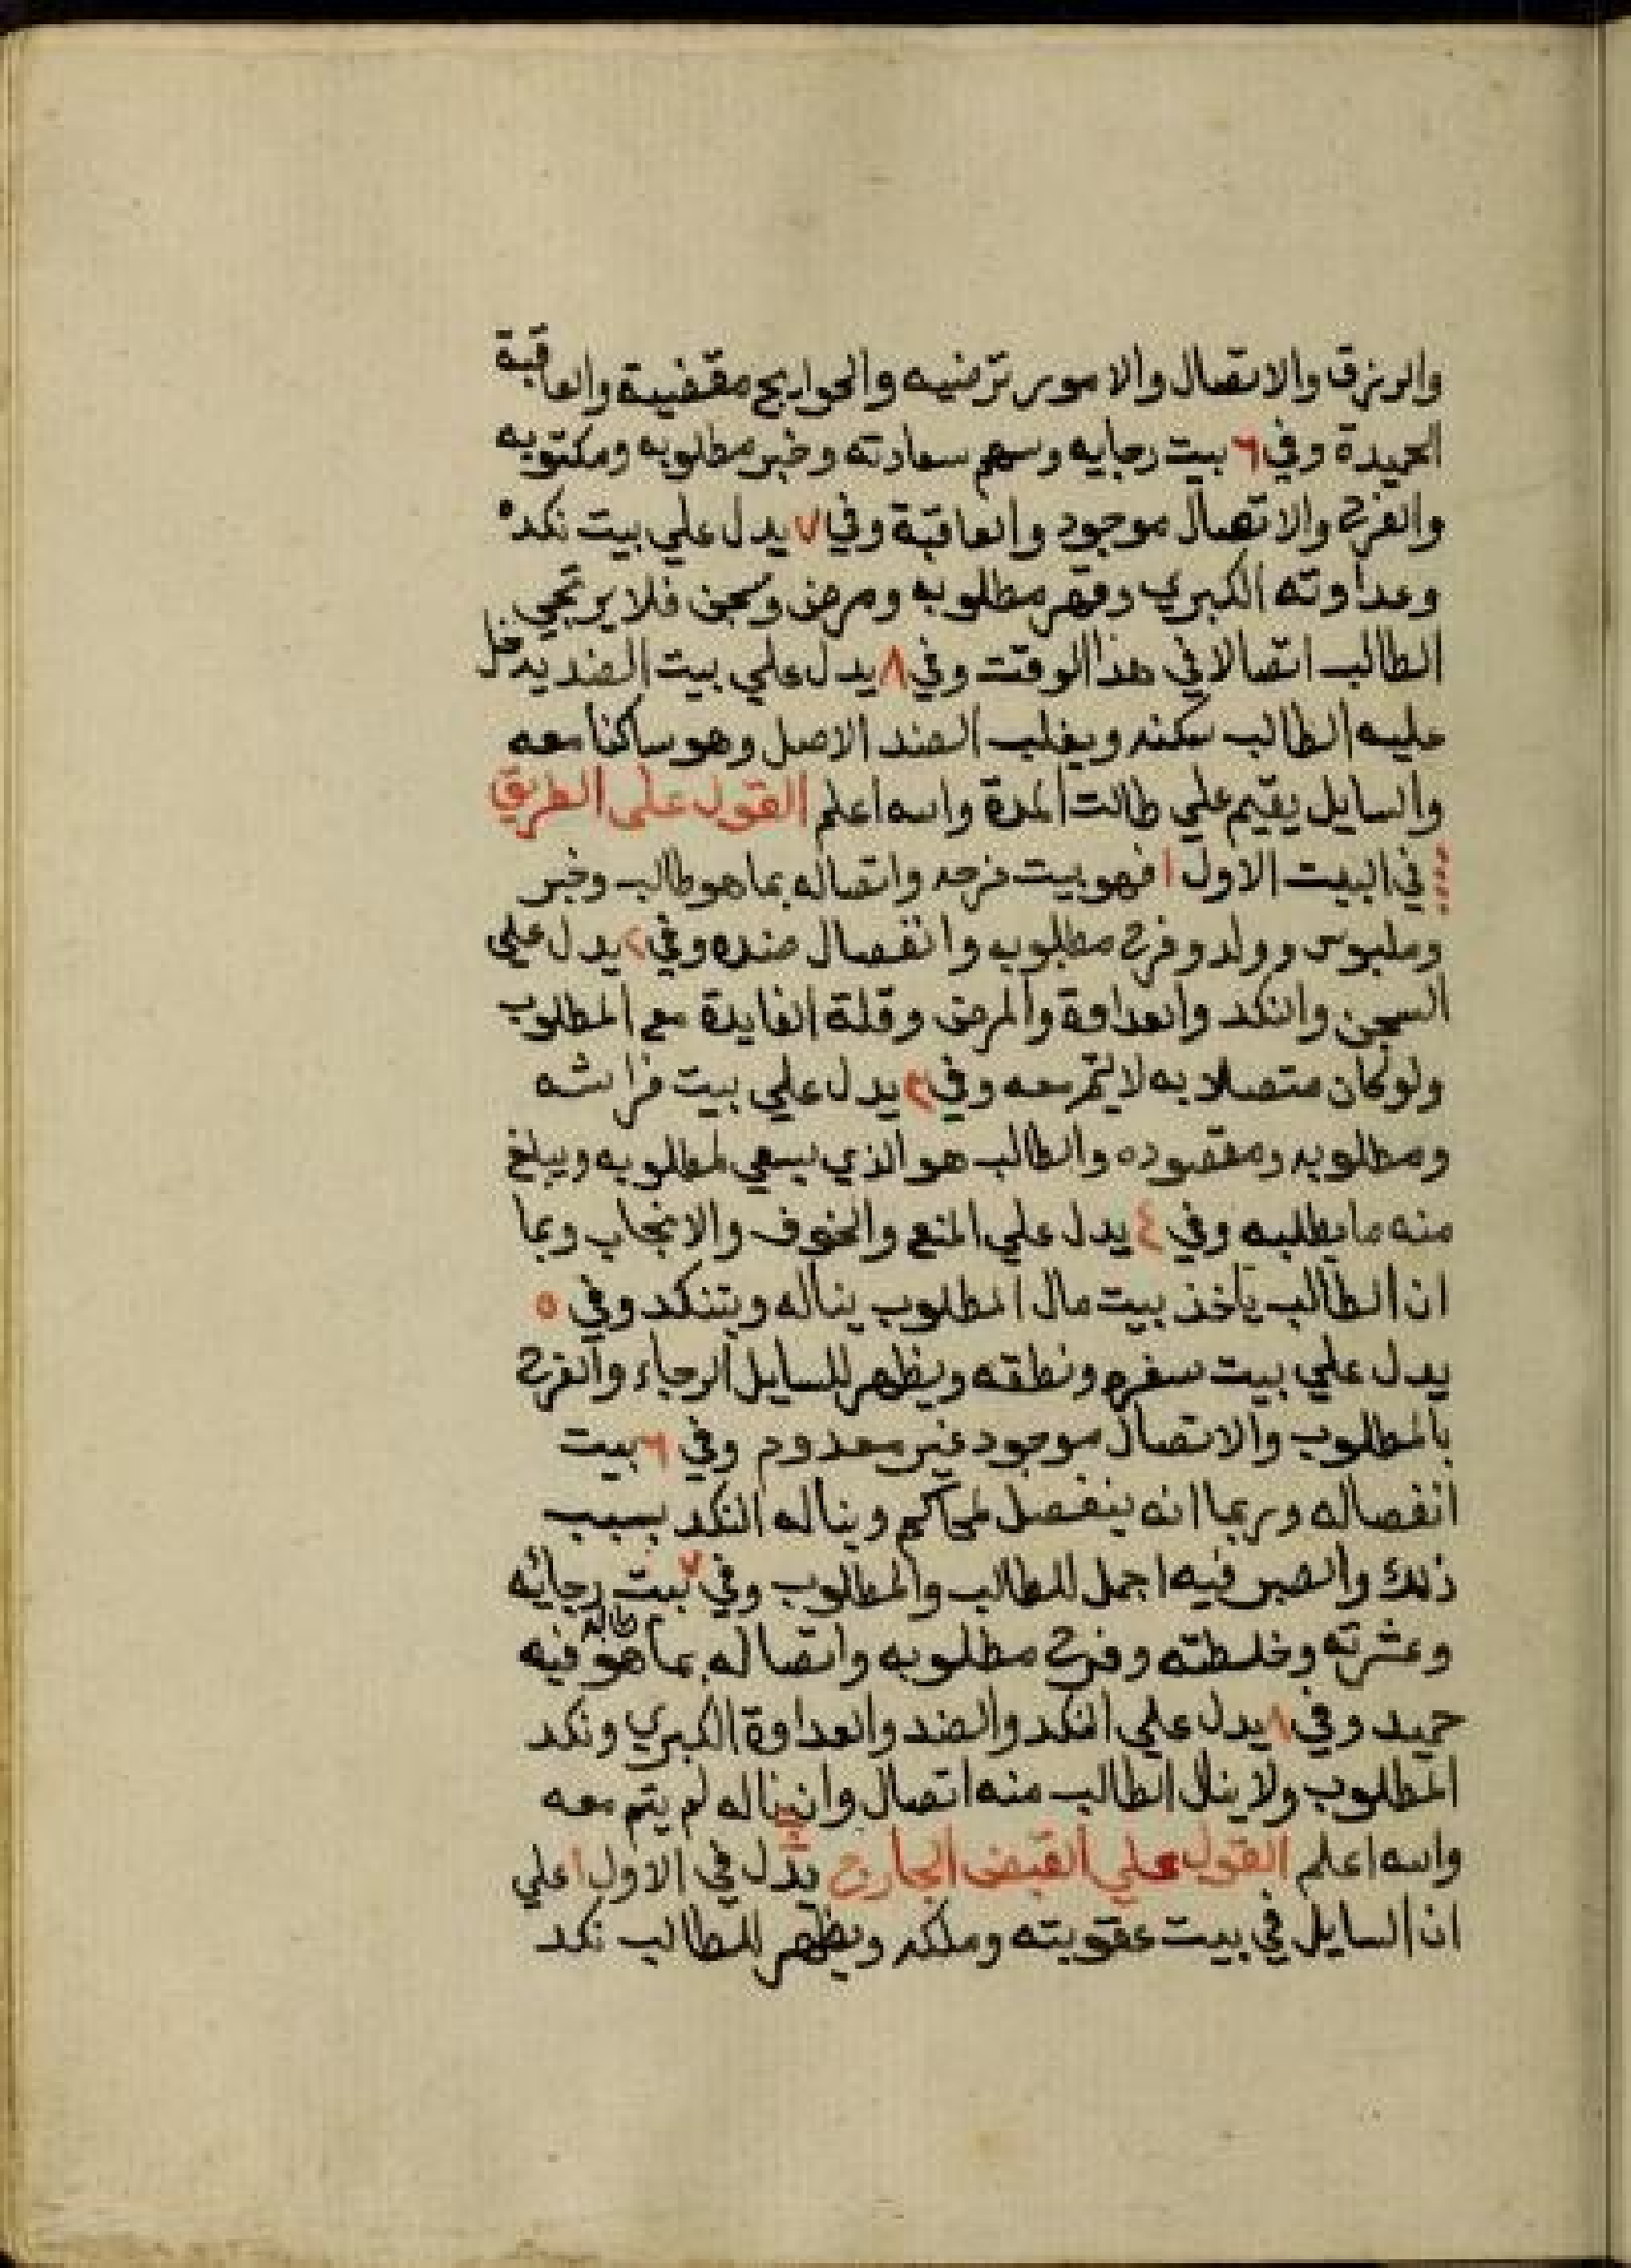 والرزق والاتصال والامور ترضيه والحوايج مقضية والعاقبة
الحميدة وفي ٦ بيت رجايه وسهم سعادته وخبر مطلوبه ومكتوبه
والفرح والاتصال موجود والعاقبة وفي ٧ يدل علي بيت نكده
وعداوته الكبري وقهر مطلوبه ومرض وسجن فلا يرتجي
الطالب اتصالا في هذا الوقت وفي ٨ يدل علي بيت الضد يدخل
عليه الطالب سكنه ويغلب الضد الاصل وهو ساكنا معه
والسايل يقيم علي طالت المدة والله اعلم القول على الطريق
في البيت الاول ١ فهو بيت فرحه واتصاله بما هو طالب وخبر
وملبوس وولد وفرح مطلوبه وانفصال ضده وفي ٢ يدل علي
السجن والنكد والعداوة والمرض وقلة الفايدة مع المطلوب
ولو كان متصلا به لا يتم معه وفي ٣ يدل علي بيت فراشه
ومطلوبه ومقصوده والطالب هو الذي يسعي لمطلوبه ويبلغ
منه ما يطلبه وفي ٤ يدل علي المنع والخوف والانجاب وبما
ان الطالب ياخذ بيت مال المطلوب يناله ويتنكد وفي ٥
يدل علي بيت سفره ونطقه ويظهر للسايل الرجاء والفرح
بالمطلوب والاتصال موجود غير معدوم وفي ٦ بيت
انفصاله وربما انه ينفصل لمحاكم ويناله النكد بسبب
ذلك والصبر فيه اجمل للطالب والمطلوب وفي ٧ بيت رجائه
وعشرته وخلطته وفرح مطلوبه واتصاله بما هو طالبه فيه
حميد وفي ٨ يدل علي النكد والضد والعداوة الكبري ونكد
المطلوب ولا ينال الطالب منه اتصال وان يناله لم يتم معه
والله اعلم القول علي القبض الخارج يدل في الاول ١ علي
ان السايل في بيت عقوبته وملكه ويظهر للطالب نكد